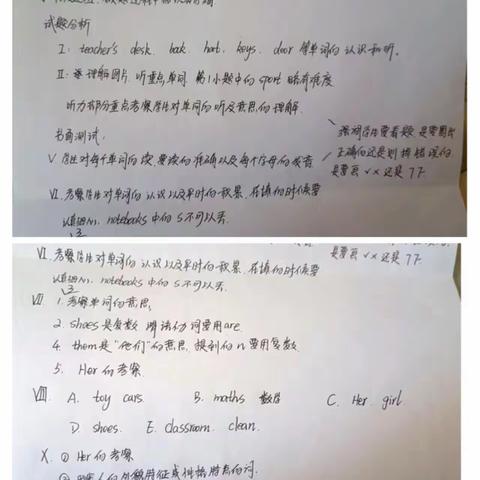 试题分析
I: teacher's desk. book. hat. keys. door 等单词的认识和听。
II: 要理解图片, 听重点单词. 第1小题中的 sport 略有难度
听力部分重点考察学生对单词的听及意思的理解.
书面测试:
V. 学生对每个单词的读. 要读的准确以及每个字母的发音
强调学生要看题 是要圈出
正确的还是划掉错误的.
是要画 √ × 还是 T F.
VI. 考察学生对单词的认识以及平时的积累. 在填的时候要
认真细心. notebooks 中的 s 不可以丢.
VI. 考察学生对单词的认识以及平时的积累. 在填的时候要
是要画 √ × 还是 T F.
认真细心. notebooks 中的 s 不可以丢.
VII 1. 考察单词的意思.
2. shoes 是复数 谓语动词要用 are.
4. them 是 "他们" 的意思. 提到的 n 要用复数.
5. Her 的考察.
VIII. A. toy cars. B. maths 数学 C. Her. girl
D. shoes. E. classroom. clean.
X. ① Her 的考察